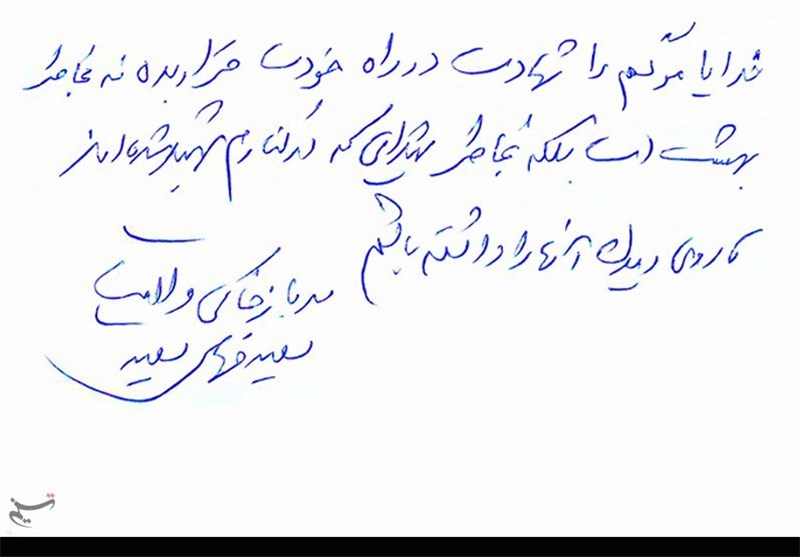 خدایا مرگم را شهادت در راه خودت قرار بده نه بخاطر
بهشت ات بلکه بخاطر شهدایی که در کنارم شهید شده اند
تا روی دیدن آنها را داشته باشم
سرباز خاکی ولایت
سعید
تسنیم